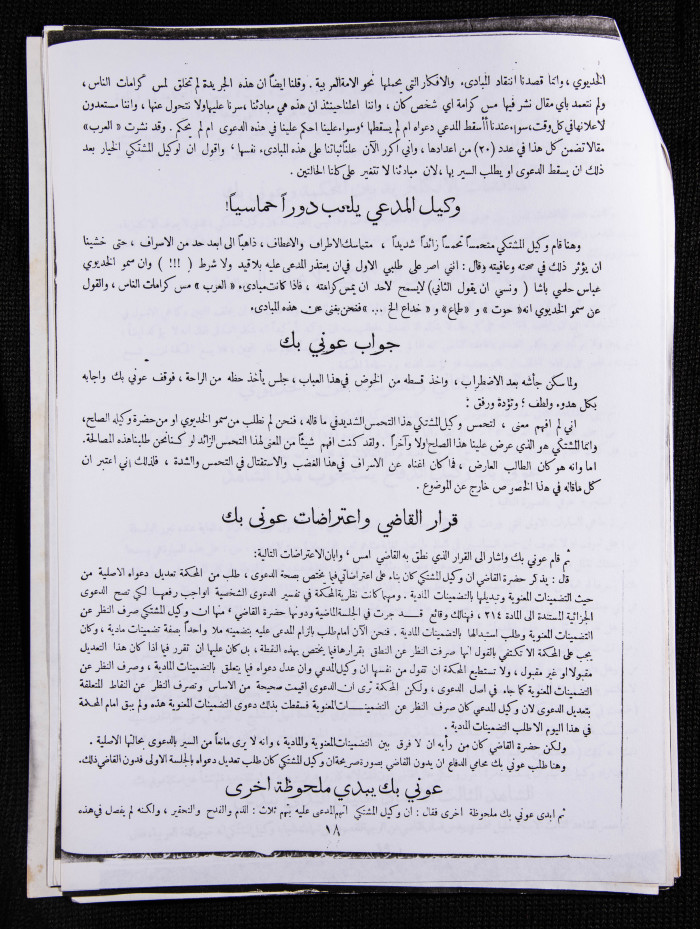 الخديوي ، وانما قصدنا انتقاد المبادىء والافكار التي يحملها نحو الامة العربية . وقلنا ايضاً ان هذه الجريدة لم تخلق لمس كرامات الناس ،
ولم نتعمد بأي مقال نشر فيها مس كرامة اي شخص كان ، واننا اعلنا حينئذ ان هذه هي مبادئنا ، سرنا عليها ولا نتحول عنها ، واننا مستعدون
لاعلانها في كل وقت ، سواء عندنا أأسقط المدعي دعواه ام لم يسقطها ، وسواء علينا احكم علينا في هذه الدعوى ام لم يحكم . وقد نشرت « العرب »
مقالا تضمن كل هذا في عدد (٢٠) من اعدادها ، واني اكرر الآن علناً ثباتنا على هذه المبادىء نفسها ، واقول ان لوكيل المشتكي الخيار بعد
ذلك ان يسقط الدعوى او يطلب السير بها ، لان مبادئنا لا تتغير على كلتا الحالتين .
وكيل المدعي يلعب دوراً حماسياً !
وهنا قام وكيل المشتكي متحمساً تحمساً زائداً شديداً ، متماسك الاطراف والاعطاف ، ذاهباً الى ابعد حد من الاسراف ، حتى خشينا
ان يؤثر ذلك في صحته وعافيته وقال : انني اصر على طلبي الاول في ان يعتذر المدعى عليه بلا قيد ولا شرط ( !!! ) وان سمو الخديوي
عباس حلمي باشا ( ونسي ان يقول الثاني ) لا يسمح لاحد ان يمس كرامته ، فاذا كانت مبادىء « العرب » مس كرامات الناس ، والقول
عن سمو الخديوي انه « حوت » و « طماع » و « خداع الخ ... » فنحن بغنى عن هذه المبادىء .
جواب عوني بك
ولما سكن جأشه بعد الاضطراب ، واخذ قسطه من الخوض في هذا العباب ، جلس يأخذ حظه من الراحة ، فوقف عوني بك واجابه
بكل هدوء ولطف ؛ وتؤدة ورفق :
اني لم افهم معنى ، لتحمس وكيل المشتكي هذا التحمس الشديد في ما قاله ، فنحن لم نطلب من سمو الخديوي او من حضرة وكيله الصلح ،
وانما المشتكي هو الذي عرض علينا هذا الصلح اولا وآخراً . ولقد كنت افهم شيئاً من المعنى لهذا التحمس الزائد لو كنا نحن طلبنا هذه المصالحة .
اما وانه هو كان الطالب العارض ، فما كان اغناه عن الاسراف في هذا الغضب والاستقتال في التحمس والشدة ، فلذلك إني اعتبر ان
كل ما قاله في هذا الخصوص خارج عن الموضوع .
قرار القاضي واعتراضات عوني بك
ثم قام عوني بك واشار الى القرار الذي نطق به القاضي امس ، وابان الاعتراضات التالية :
قال : يذكر حضرة القاضي ان وكيل المشتكي كان بناء على اعتراضاتي فيما يختص بصحة الدعوى ، طلب من المحكمة تعديل دعواه الاصلية من
حيث التضمينات المعنوية وتبديلها بالتضمينات المادية . ومهما كانت نظرية المحكمة في تفسير الدعوى الشخصية الواجب رفعها لكي تصح الدعوى
الجزائية المستندة الى المادة ٢١٤ ، فهنالك وقائع قد جرت في الجلسة الماضية ودونها حضرة القاضي ، منها ان وكيل المشتكي صرف النظر عن
التضمينات المعنوية وطلب استبدالها بالتضمينات المادية . فنحن الآن امام طلب بالزام المدعى عليه بتضمينه ملا واحداً بصفة تضمينات مادية ، وكان
يجب على المحكمة الا تكتفي بالقول انها صرفت النظر عن النطق بقرارها فيما يختص بهذه النقطة ، بل كان عليها ان تقرر فيما اذا كان هذا التعديل
مقبولا او غير مقبول ، ولا تستطيع المحكمة ان تقول من نفسها ان وكيل المدعي وان عدل دعواه فيما يتعلق بالتضمينات المادية ، وصرف النظر عن
التضمينات المعنوية كما جاء في اصل الدعوى ، ولكن المحكمة ترى ان الدعوى اقيمت صحيحة من الاساس وتصرف النظر عن النقاط المتعلقة
بتعديل الدعوى لان وكيل المدعي كان صرف النظر عن التضمينات المعنوية فسقطت بذلك دعوى التضمينات المعنوية هذه ولم يبق امام المحكمة
في هذا اليوم الا طلب التضمينات المادية .
ولكن حضرة القاضي كان من رأيه ان لا فرق بين التضمينات المعنوية والمادية ، وانه لا يرى مانعاً من السير بالدعوى بحالتها الاصلية .
وهنا طلب عوني بك محامي الدفاع ان يدون القاضي بصورة صريحة ان وكيل المشتكي كان طلب تعديل دعواه بالجلسة الاولى فدون القاضي ذلك .
عوني بك يبدي ملحوظة اخرى
ثم ابدى عوني بك ملحوظة اخرى فقال : ان وكيل المشتكي اتهم المدعى عليه بتهم ثلاث : الذم والقدح والتحقير ، ولكنه لم يفصل في هذه
١٨